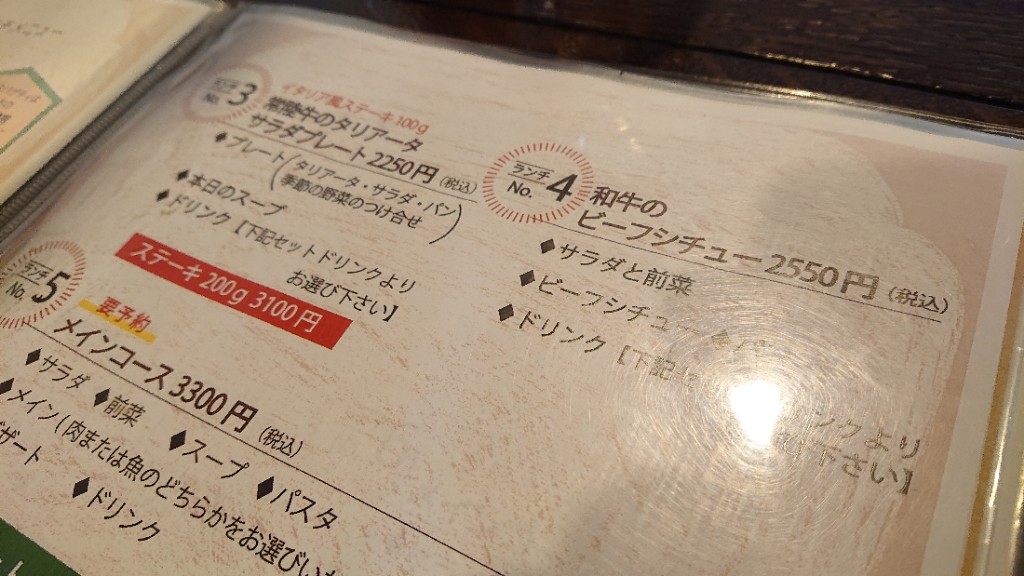 ランチ
No. 3
イタリア風ステーキ100g
常陸牛のタリアータ
サラダプレート 2250円 (税込)
◆プレート(タリアータ・サラダ・パン
季節の野菜のつけ合せ)
◆本日のスープ
◆ドリンク【下記セットドリンクより
お選び下さい】
ステーキ 200g 3100円
ランチ
No. 4
和牛の
ビーフシチュー 2550円 (税込)
◆サラダと前菜
◆ビーフシチュー ◆
◆ドリンク【下記
ンクより
下さい】
ランチ
No. 5
要予約
メインコース 3300円 (税込)
◆サラダ ◆前菜 ◆スープ ◆パスタ
◆メイン(肉または魚のどちらかをお選び
ザート ◆ドリンク